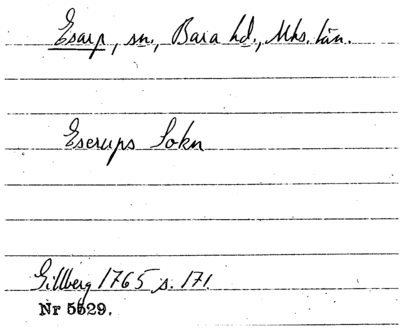 Esarp, sn., Bara hd., Mhs. län.
Eserups Sokn
Gillberg 1765 s. 171.
Nr 5529.